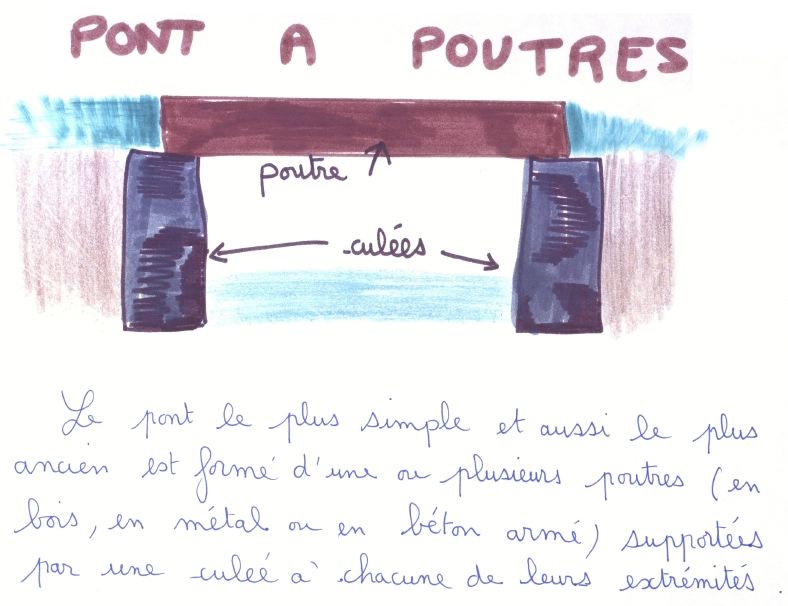 PONT A POUTRES
poutre
culées
Le pont le plus simple et aussi le plus
ancien est formé d'une ou plusieurs poutres (en
bois, en métal ou en béton armé) supportées
par une culée à chacune de leurs extrémités.